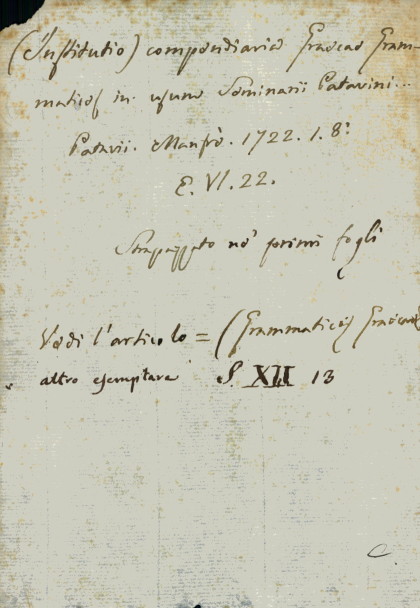 (Institutio) compendiaria Graecae Gram-
maticos in usum Seminarii Patavini...
Patavii. Manfrè. 1722. 1. 8°:
E. VI. 22.
Strapazzato ne' primi fogli
Vedi l'articolo = (Grammatices) Graecae
altro esemplare S. XII 13
C.